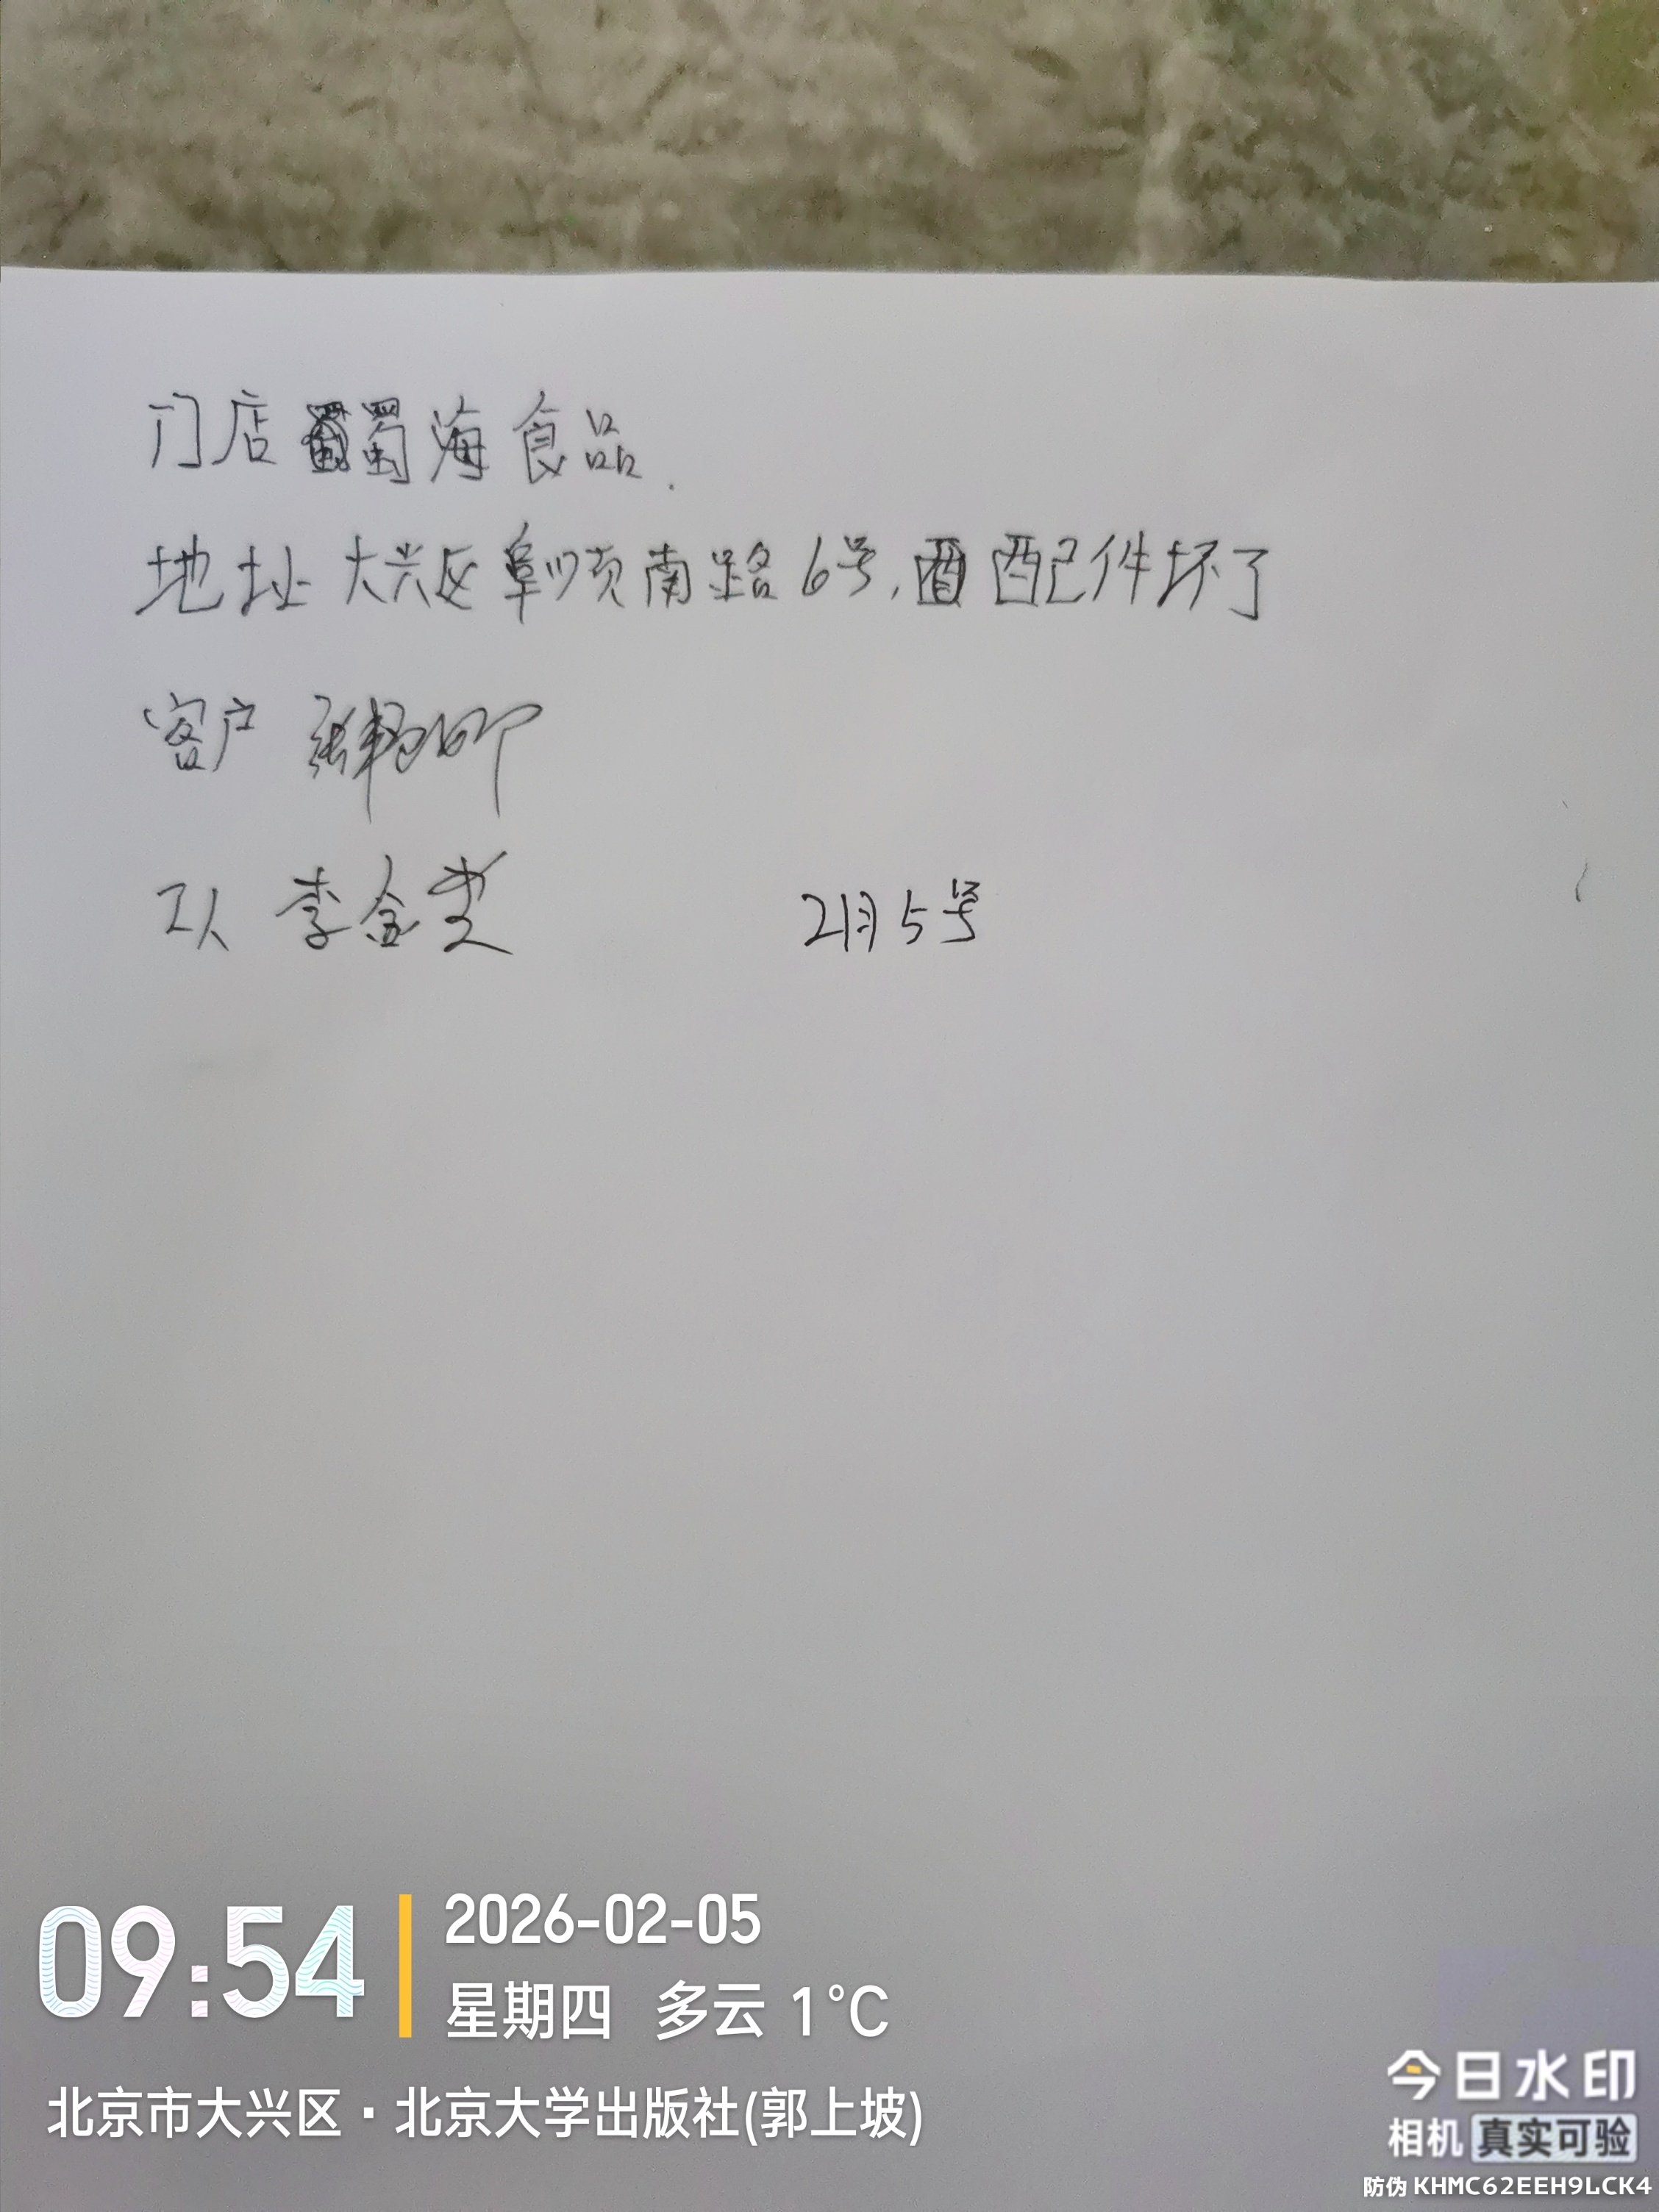 门店 蜀海食品.
地址 大兴区阜顺南路6号,配件坏了
客户
工人 李金
2月5号
09:54
2026-02-05
星期四 多云 1°C
北京市大兴区·北京大学出版社(郭上坡)
今日水印
相机 真实可验
防伪 KHMC62EEH9LCK4